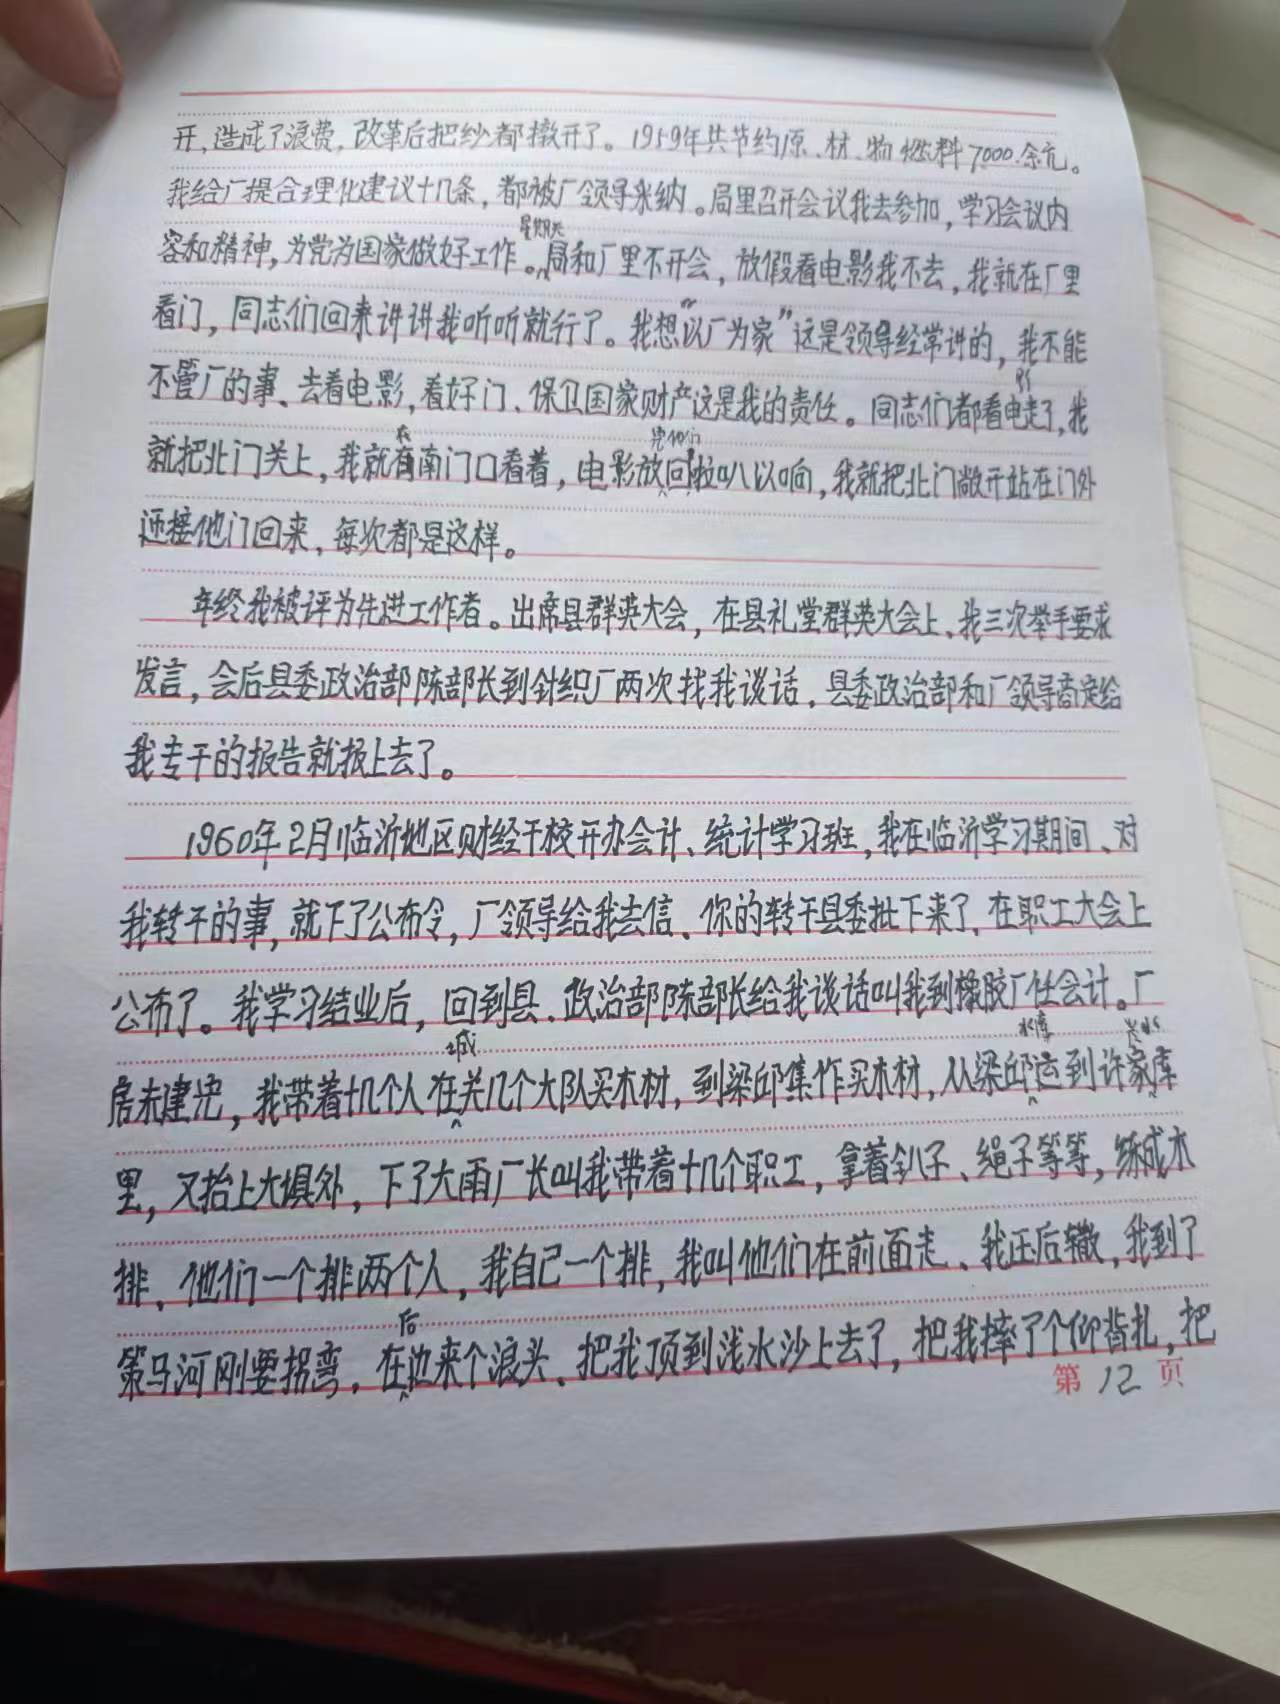 开,造成了浪费,改革后把纱都撤开了。1959年共节约原、材、物燃料7000余元。
我给厂提合理化建议十几条,都被厂领导采纳。局里召开会议我去参加,学习会议内
容和精神,为党为国家做好工作。星期天局和厂里不开会,放假看电影我不去,我就在厂里
看门,同志们回来讲讲我听听就行了。我想“以厂为家”这是领导经常讲的,我不能
不管厂的事、去看电影,看好门、保卫国家财产这是我的责任。同志们都看电影走了,我
就把北门关上,我就在南门口看着,电影放完他们回拉叭以响,我就把北门敞开站在门外
迎接他门回来,每次都是这样。
年终我被评为先进工作者。出席县群英大会,在县礼堂群英大会上、我三次举手要求
发言,会后县委政治部陈部长到针织厂两次找我谈话,县委政治部和厂领导商定给
我专干的报告就报上去了。
1960年2月临沂地区财经干校开办会计、统计学习班,我在临沂学习期间、对
我转干的事,就下了公布令,厂领导给我去信、你的转干县委批下来了,在职工大会上
公布了。我学习结业后,回到县、政治部陈部长给我谈话叫我到橡胶厂任会计。厂
房未建完,我带着十几个人在城关几个大队买木材,到梁邱集作买木材,从梁邱水库运到许家崖水库
里,又抬上大埧外,下了大雨厂长叫我带着十几个职工,拿着扒子、绳子等等,练成木
排,他们一个排两个人,我自己一个排,我叫他们在前面走、我压后辙,我到了
策马河刚要拐弯,在后边来个浪头、把我顶到浅水沙上去了,把我摔了个仰背扎,把
第12页